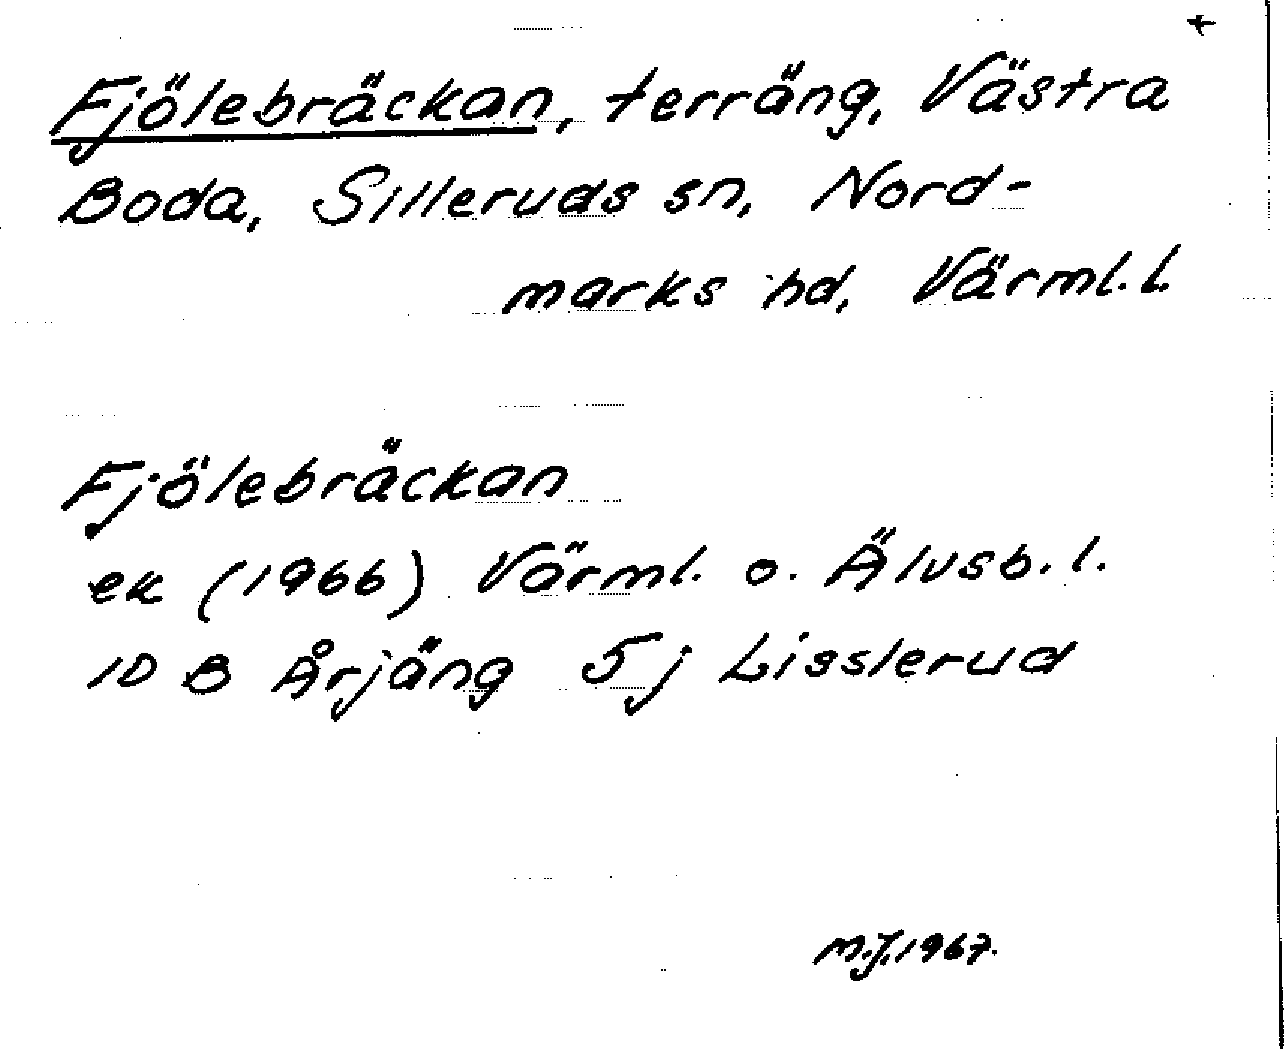 +
Fjölebräckan, terräng, Västra
Boda, Silleruds sn, Nord-
marks hd, Värml. l.
Fjölebräckan
ek (1966) Värml. o. Älvsb. l.
10 B Årjäng 5 j Lisslerud
M.J. 1967.